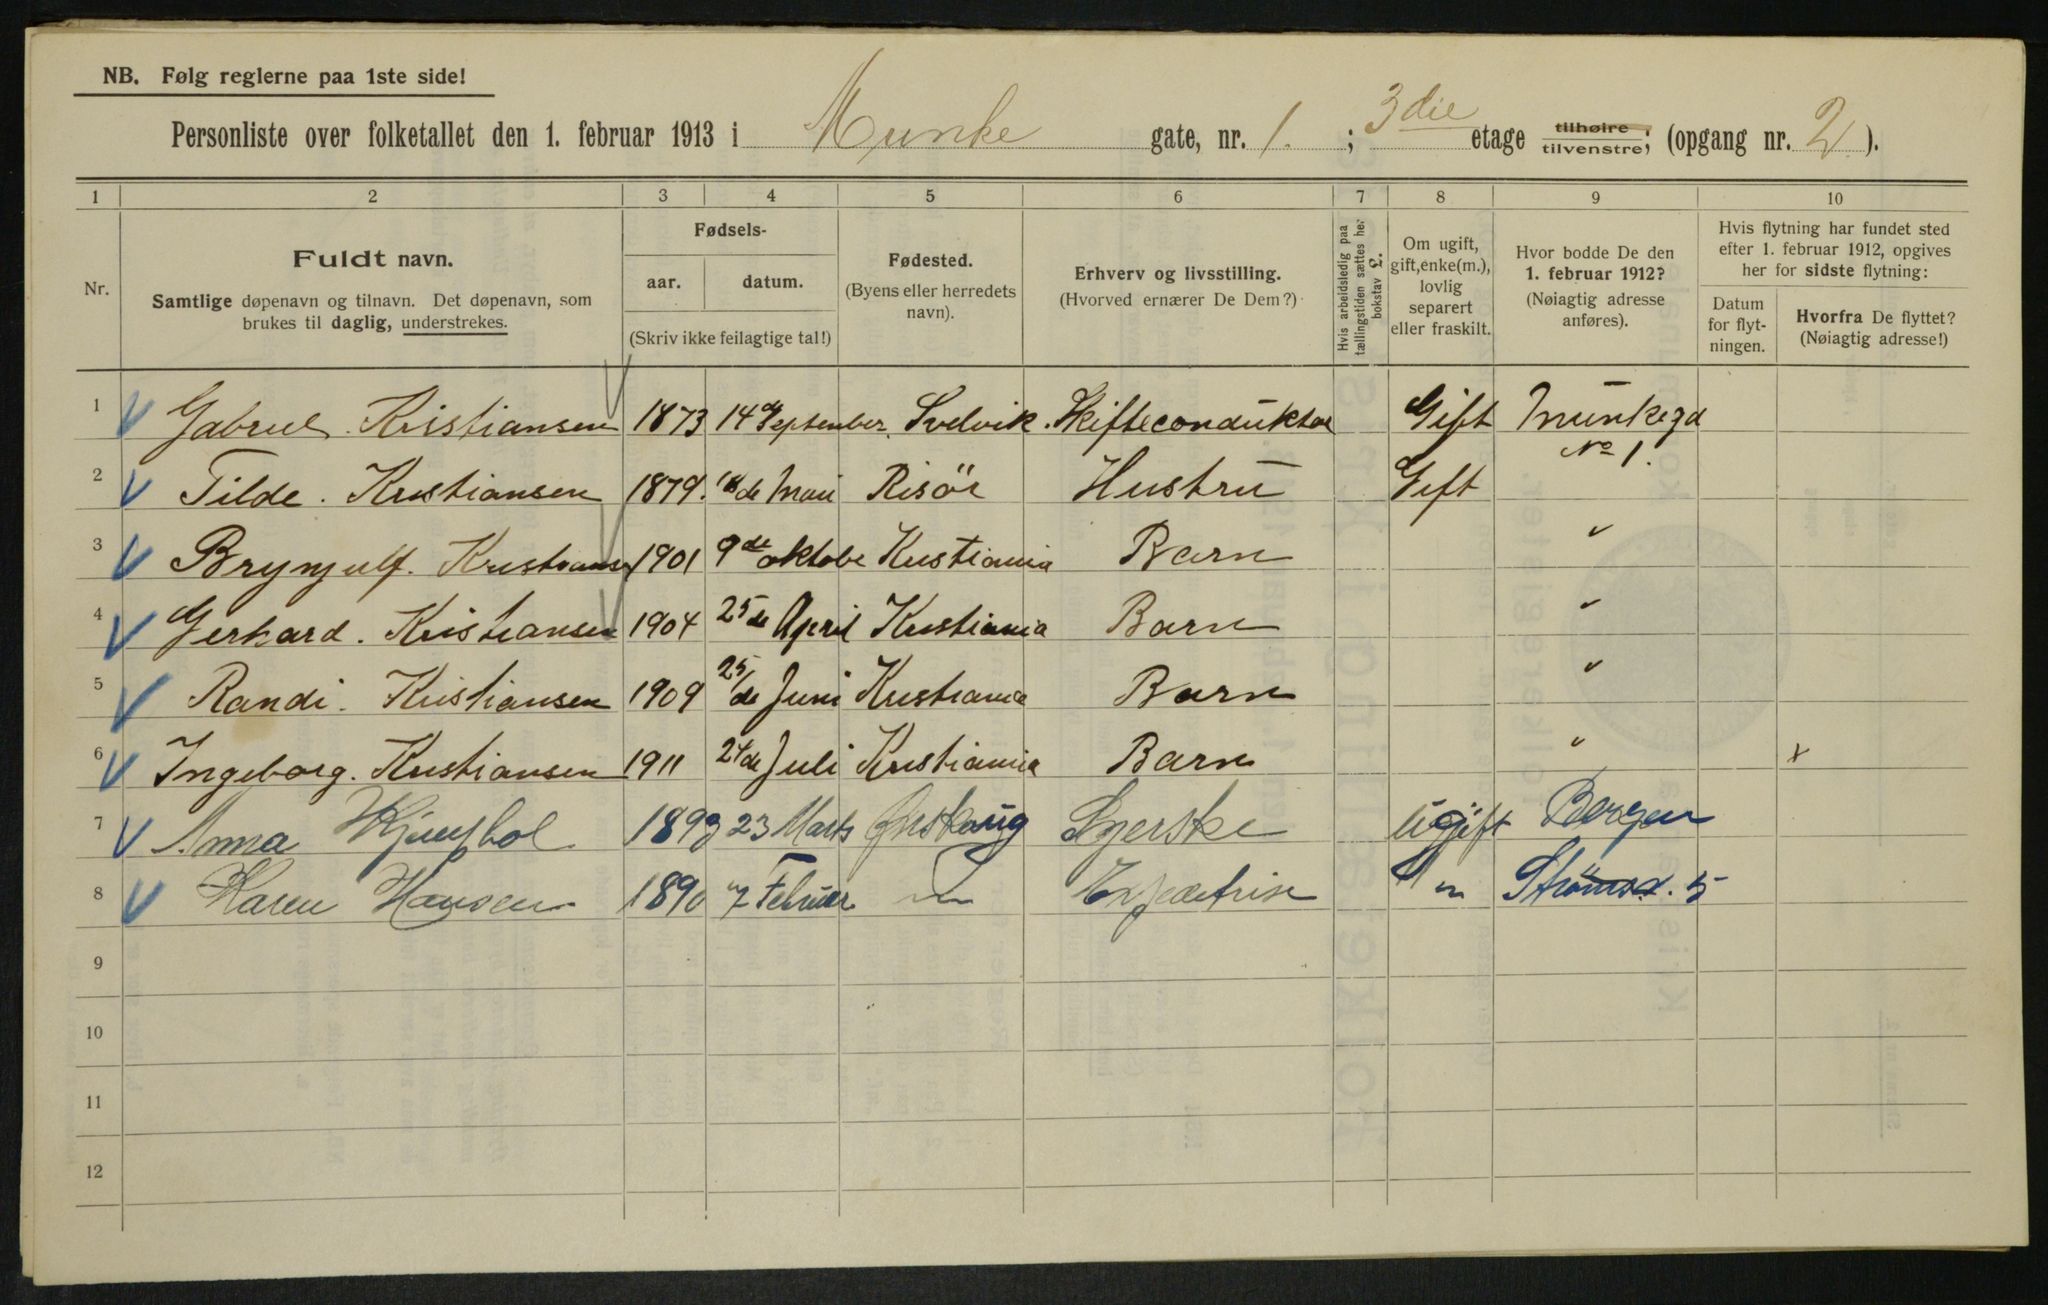 NB. Følg reglerne paa 1ste side!
Personliste over folketallet den 1. februar 1913 i Munke gate, nr. 1. ; 3die etage tilhøire tilvenstre; (opgang nr. 2 ).
1 2 3 4 5 6 7 8 9 10
Nr.
Fuldt navn.
Samtlige døpenavn og tilnavn. Det døpenavn, som
brukes til daglig, understrekes.
Fødsels-
aar. datum.
(Skriv ikke feilagtige tal!)
Fødested.
(Byens eller herredets
navn).
Erhverv og livsstilling.
(Hvorved ernærer De Dem?)
Hvis arbeidsledig paa
tællingstiden sættes her
bokstav L.
Om ugift,
gift, enke(m.),
lovlig
separert
eller fraskilt.
Hvor bodde De den
1. februar 1912?
(Nøiagtig adresse
anføres).
Hvis flytning har fundet sted
efter 1. februar 1912, opgives
her for sidste flytning:
Datum
for flyt-
ningen.
Hvorfra De flyttet?
(Nøiagtig adresse!)
1 Gabriel Kristiansen 1873 14de September Svelvik Skifteconduktør Gift Munkegd
No 1.
2 Tilde. Kristiansen 1879. de Mai Risör Hustru Gift
3 Brynjulf. Kristiansen 1901 9de oktobe Kristiania Barn "
4 Gerhard. Kristiansen 1904 25de April Kristiania Barn "
5 Randi. Kristiansen 1909 25/de Juni Kristiania Barn "
6 Ingeborg. Kristiansen 1911 24de Juli Kristiania Barn " x
7 Anna 1893 23 Marts Syerske Ugift Bergen
8 Karen Hansen 1890 7 Februar " Expeditrise " Strömsd. 5
9
10
11
12